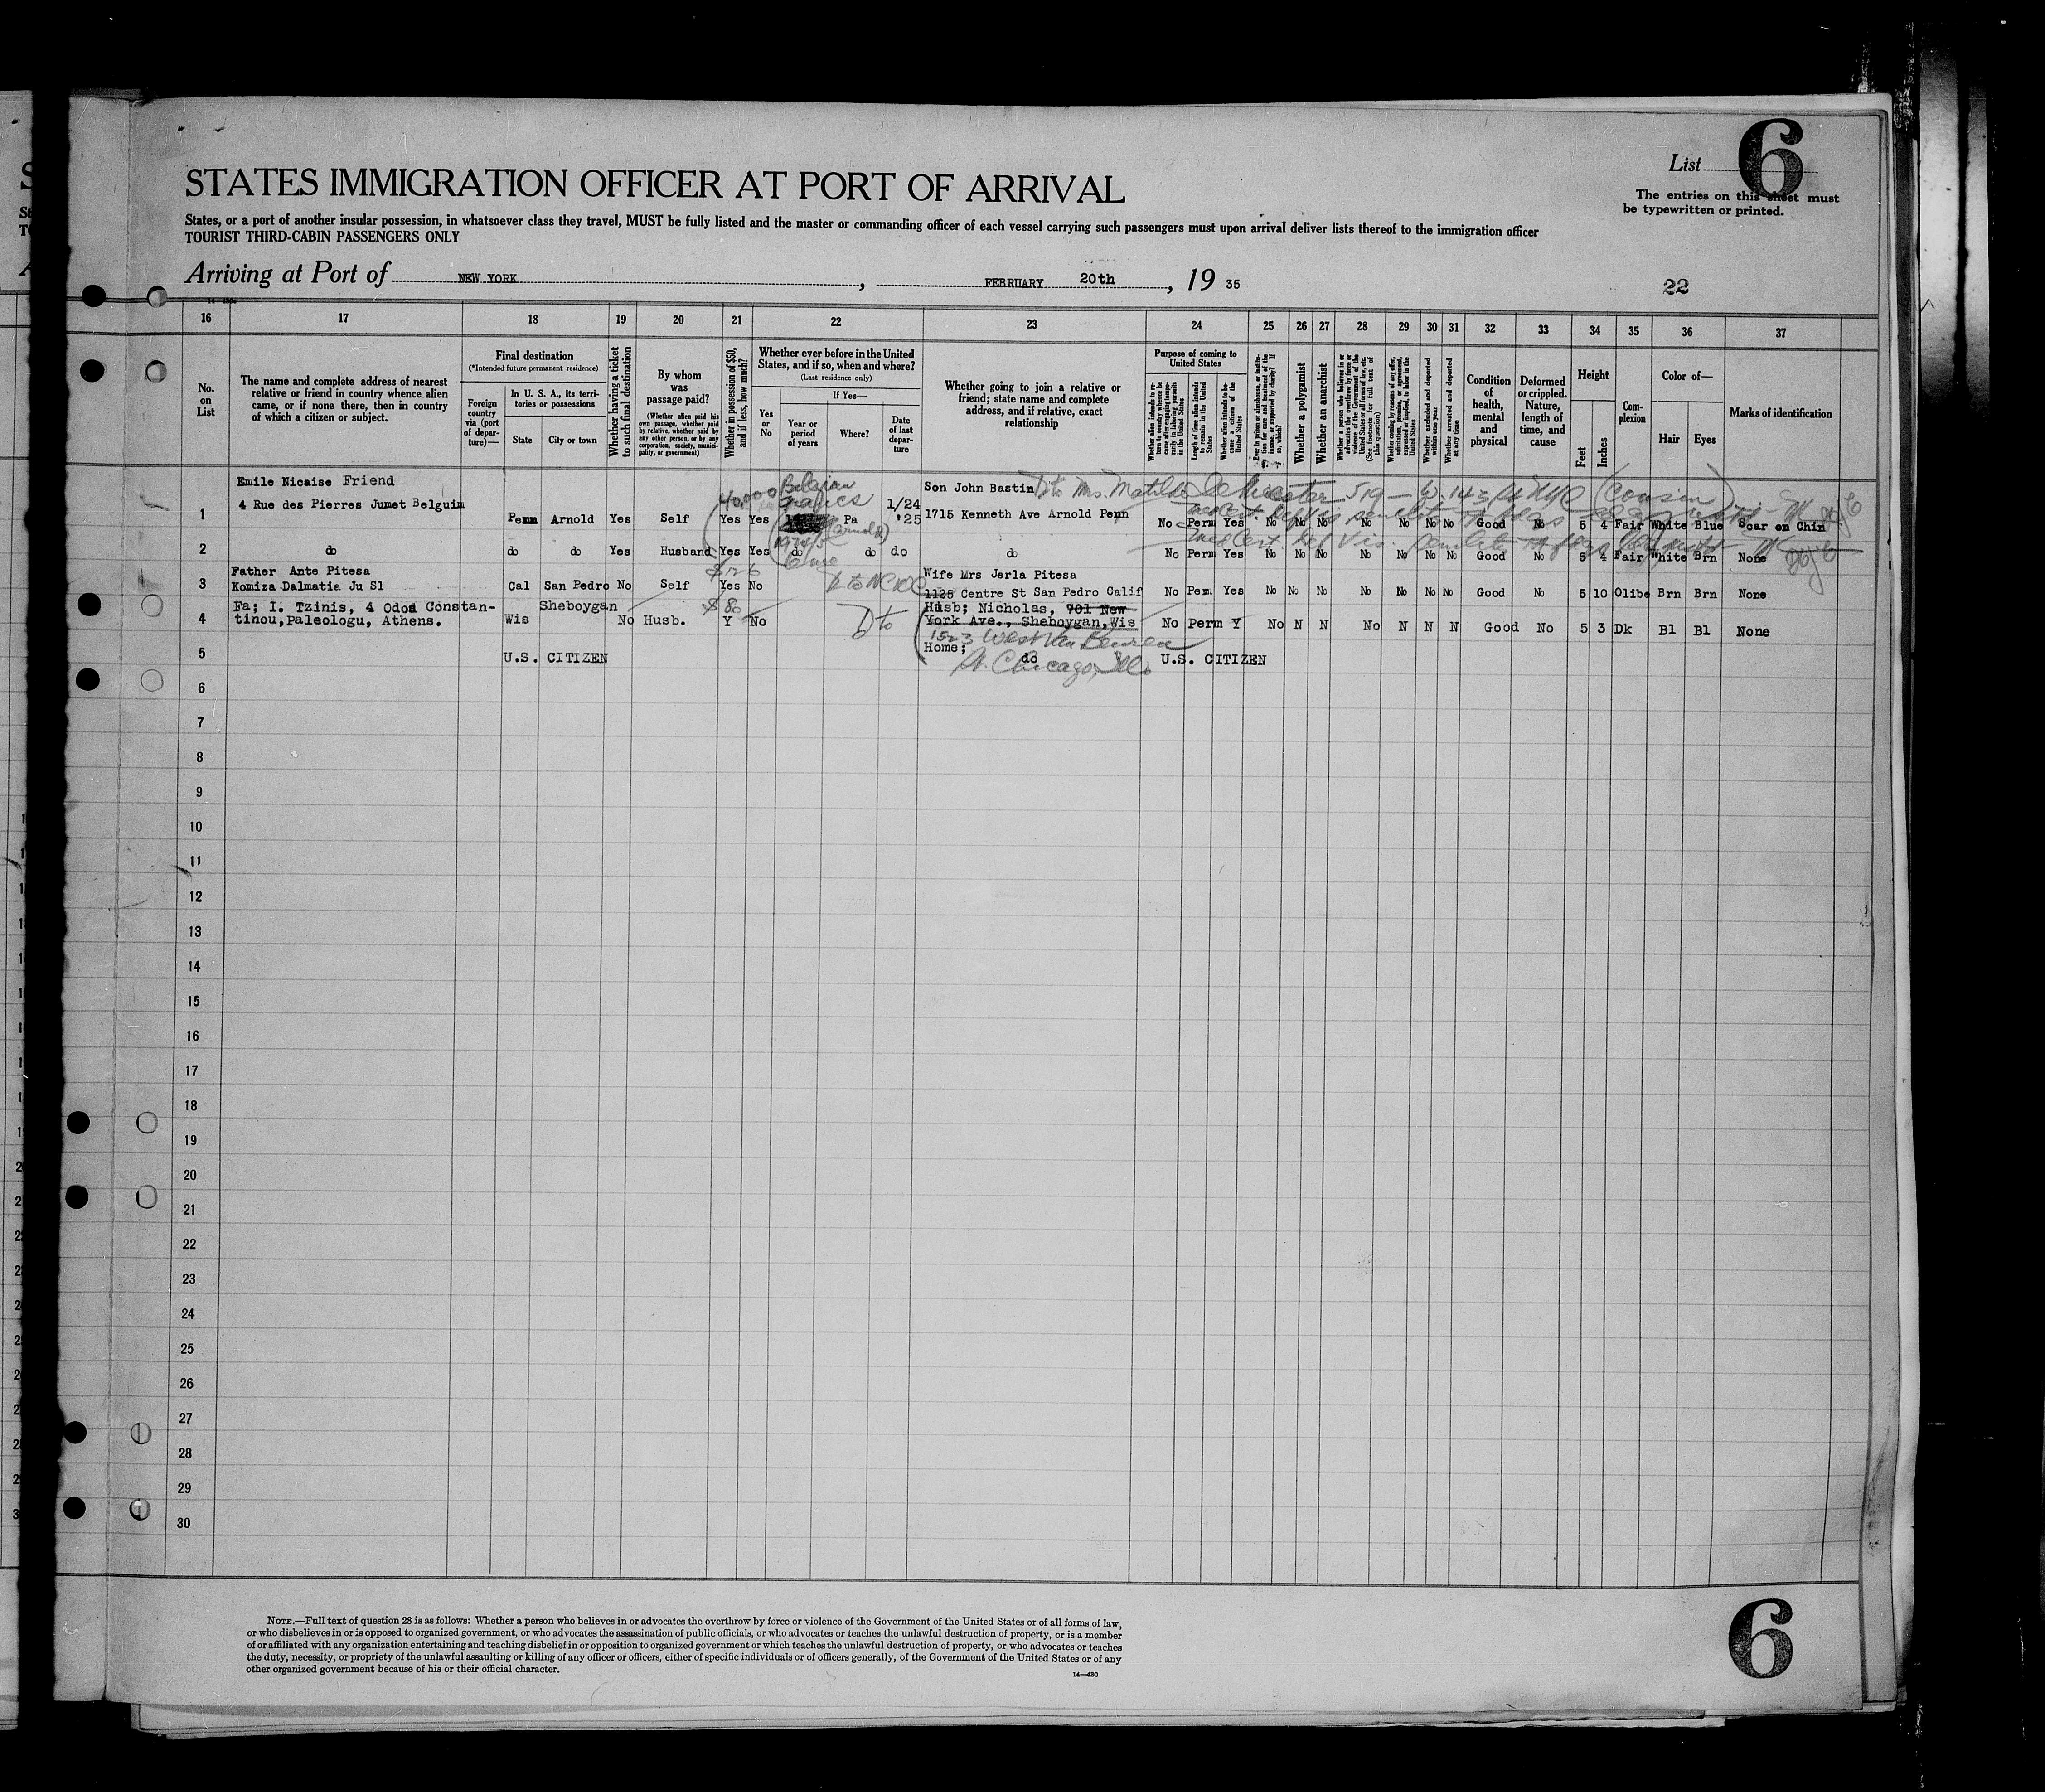 List 6
The entries on this sheet must
be typewritten or printed.
STATES IMMIGRATION OFFICER AT PORT OF ARRIVAL
States, or a port of another insular possession, in whatsoever class they travel, MUST be fully listed and the master or commanding officer of each vessel carrying such passengers must upon arrival deliver lists thereof to the immigration officer
TOURIST THIRD-CABIN PASSENGERS ONLY
Arriving at Port of NEW YORK, FEBRUARY 20th, 19 35
22
16 17 18 19 20 21 22 23 24 25 26 27 28 29 30 31 32 33 34 35 36 37
No. on List
The name and complete address of nearest relative or friend in country whence alien came, or if none there, then in country of which a citizen or subject.
Final destination
(*Intended future permanent residence)
Foreign country via (port of departure)—
In U. S. A., its territories or possessions
State
City or town
Whether having a ticket to such final destination
By whom was passage paid?
(Whether alien paid his own passage, whether paid by relative, whether paid by any other person, or by any corporation, society, municipality, or government)
Whether in possession of $50, and if less, how much?
Whether ever before in the United States, and if so, when and where?
(Last residence only)
Yes or No
If Yes—
Year or period of years
Where?
Date of last departure
Whether going to join a relative or friend; state name and complete address, and if relative, exact relationship
Purpose of coming to United States
Whether alien intends to return to country whence he came after engaging temporarily in laboring pursuits in the United States
Length of time alien intends to remain in the United States
Whether alien intends to become a citizen of the United States
Whether a polygamist
Whether an anarchist
Whether a person who believes in or advocates the overthrow by force or violence of the Government of the United States or all forms of law, etc. (See footnote for full text of this question)
Whether coming by reason of any offer, solicitation, promise, or agreement, expressed or implied, to labor in the United States
Whether excluded and deported within one year
Whether arrested and deported at any time
Condition of health, mental and physical
Deformed or crippled. Nature, length of time, and cause
Height
Feet
Inches
Complexion
Color of—
Hair
Eyes
Marks of identification
Emile Nicaise Friend 40,000 Belgian Son John Bastin D to Mrs. Matilde 519 - W. 143 St NYC (cousin)
1 4 Rue des Pierres Jumet Belguim Penn Arnold Yes Self Yes Yes Pa 1/24 '25 1715 Kenneth Ave Arnold Penn No Perm Yes No No No No No No No Good No 5 4 Fair White Blue Scar on Chin
2 do do do Yes Husband Yes Yes do do do do No Perm Yes No No No No No No No Good No 5 4 Fair White Brn None
Father Ante Pitesa $126 Wife Mrs Jerla Pitesa
3 Komiza Dalmatia Ju Sl Cal San Pedro No Self Yes No 1125 Centre St San Pedro Calif No Perm Yes No No No No No No No Good No 5 10 Olibe Brn Brn None
Fa; I. Tzinis, 4 Odod Constan- Sheboygan $80 Husb; Nicholas, 701 New
4 tinou,Paleologu, Athens. Wis No Husb. Y No D to York Ave., Sheboygan,Wis No Perm Y No N N No N N N Good No 5 3 Dk Bl Bl None
1523 West Van Buren
Home;
5 U.S. CITIZEN do St. Chicago, Ill. U.S. CITIZEN
6
7
8
9
10
11
12
13
14
15
16
17
18
19
20
21
22
23
24
25
26
27
28
29
30
NOTE.—Full text of question 28 is as follows: Whether a person who believes in or advocates the overthrow by force or violence of the Government of the United States or of all forms of law,
or who disbelieves in or is opposed to organized government, or who advocates the assassination of public officials, or who advocates or teaches the unlawful destruction of property, or is a member
of or affiliated with any organization entertaining and teaching disbelief in or opposition to organized government or which teaches the unlawful destruction of property, or who advocates or teaches
the duty, necessity, or propriety of the unlawful assaulting or killing of any officer or officers, either of specific individuals or of officers generally, of the Government of the United States or of any
other organized government because of his or their official character.
14—430
6